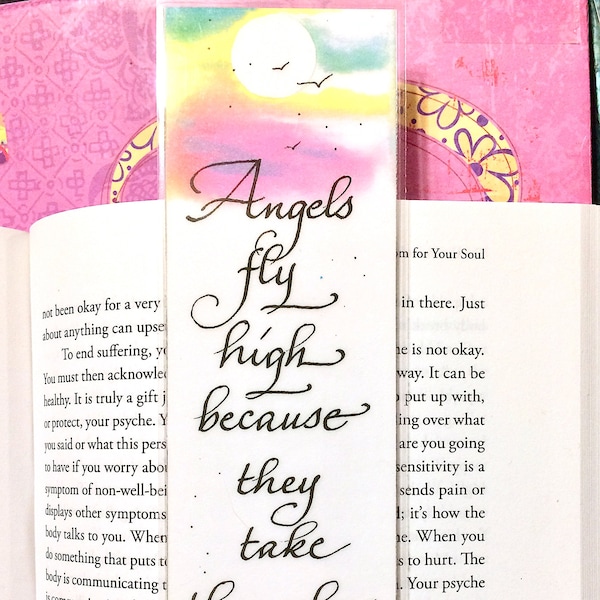 Angels
fly
high
because
they
take
om for Your Soul
not been okay for a very
about anything can upse
To end suffering, yo
You must then acknowled
healthy. It is truly a gift j
or protect, your psyche. Y
you said or what this pers
to have if you worry abou
symptom of non-well-bein
displays other symptoms
body talks to you. When
do something that puts to
body is communicating t
e in there. Just
ne is not okay.
way. It can be
o put up with,
ing over what
are you going
sensitivity is a
sends pain or
; it's how the
ne. When you
s to hurt. The
. Your psyche